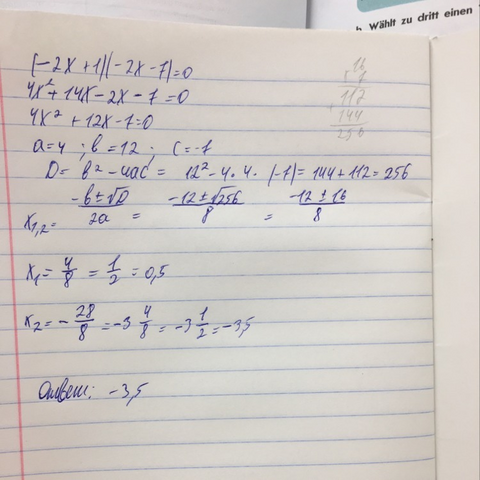 b. Wählt zu dritt einen
(-2x+1)(-2x-7)=0
4x²+14x-2x-7=0
4x²+12x-7=0
a=4; b=12; c=-7
D= b²-4ac = 12²-4·4·(-7)=144+112=256
x₁,₂= -b±√D/2a = -12±√256/8 = -12±16/8
x₁= 4/8 = 1/2 = 0,5
x₂= -28/8 = -3 4/8 = -3 1/2 = -3,5
Ответ: -3,5
16
7
112
144
256